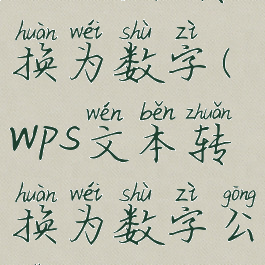 huàn wéi shù zì
换为数字(
wén běn zhuǎn
WPS文本转
huàn wéi shù zì gōng
换为数字公